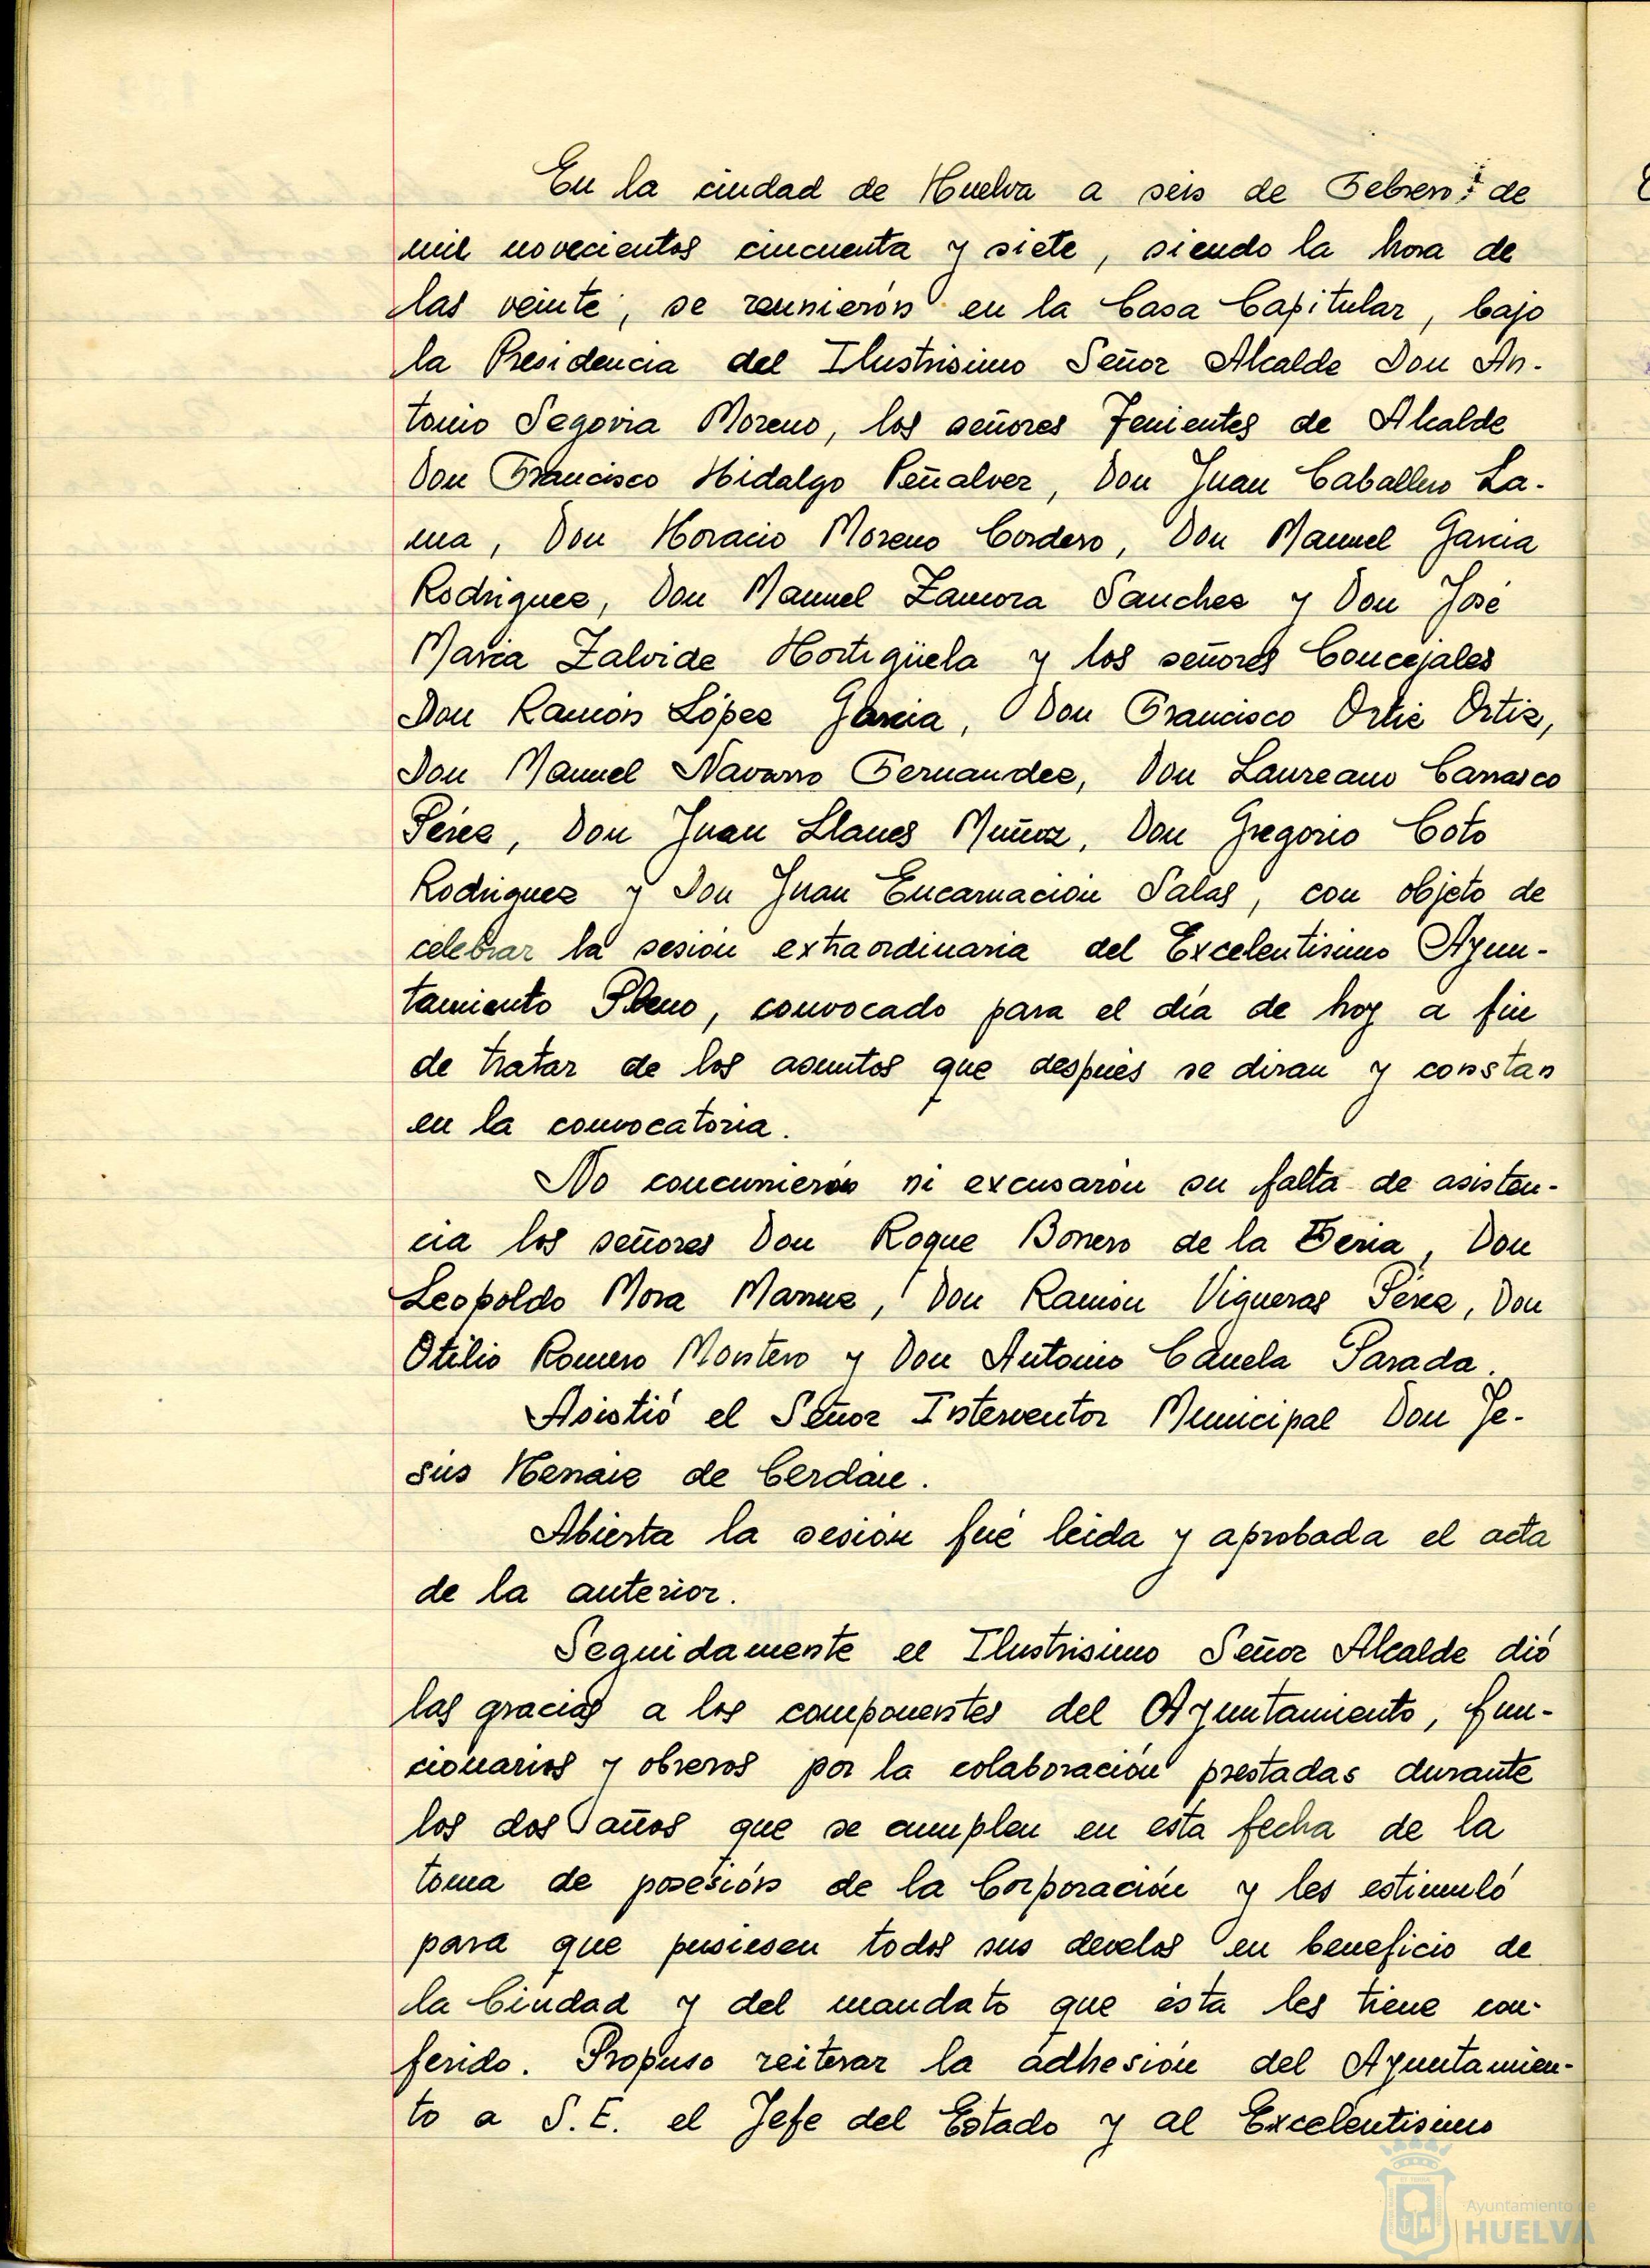 En la ciudad de Huelva a seis de Febrero de
mil novecientos cincuenta y siete, siendo la hora de
las veinte, se reunierón en la Casa Capitular, bajo
la Presidencia del Ilustrisimo Señor Alcalde Don An-
tonio Segovia Moreno, los señores Tenientes de Alcalde
Don Francisco Hidalgo Peñalver, Don Juan Caballero La-
ma, Don Horacio Moreno Cordero, Don Manuel Garcia
Rodriguez, Don Manuel Zamora Sanchez y Don José
Maria Zalvide Hortigüela y los señores Concejales
Don Ramón López Garcia, Don Francisco Ortiz Ortiz,
Don Manuel Navarro Fernandez, Don Laureano Carrasco
Pérez, Don Juan Llanes Muñoz, Don Gregorio Coto
Rodriguez y Don Juan Encarnación Salas, con objeto de
celebrar la sesión extraordinaria del Excelentisimo Ayun-
tamiento Pleno, convocado para el día de hoy a fin
de tratar de los asuntos que después se diran y constan
en la convocatoria.
No concurrierón ni excusarón su falta de asisten-
cia los señores Don Roque Borrero de la Feria, Don
Leopoldo Mora Marruz, Don Ramón Vigueras Pérez, Don
Otilio Romero Montero y Don Antonio Canela Parada.
Asistió el Señor Interventor Municipal Don Je-
sús Hernaiz de Cerdán.
Abierta la sesión fué leida y aprobada el acta
de la anterior.
Seguidamente el Ilustrisimo Señor Alcalde dió
las gracias a los componentes del Ayuntamiento, fun-
cionarios y obreros por la colaboración prestadas durante
los dos años que se cumplen en esta fecha de la
toma de posesión de la Corporación y les estimuló
para que pusiesen todos sus develos en beneficio de
la Ciudad y del mandato que ésta les tiene con-
ferido. Propuso reiterar la adhesión del Ayuntamien-
to a S. E. el Jefe del Estado y al Excelentisimo
Ayuntamiento de
HUELVA